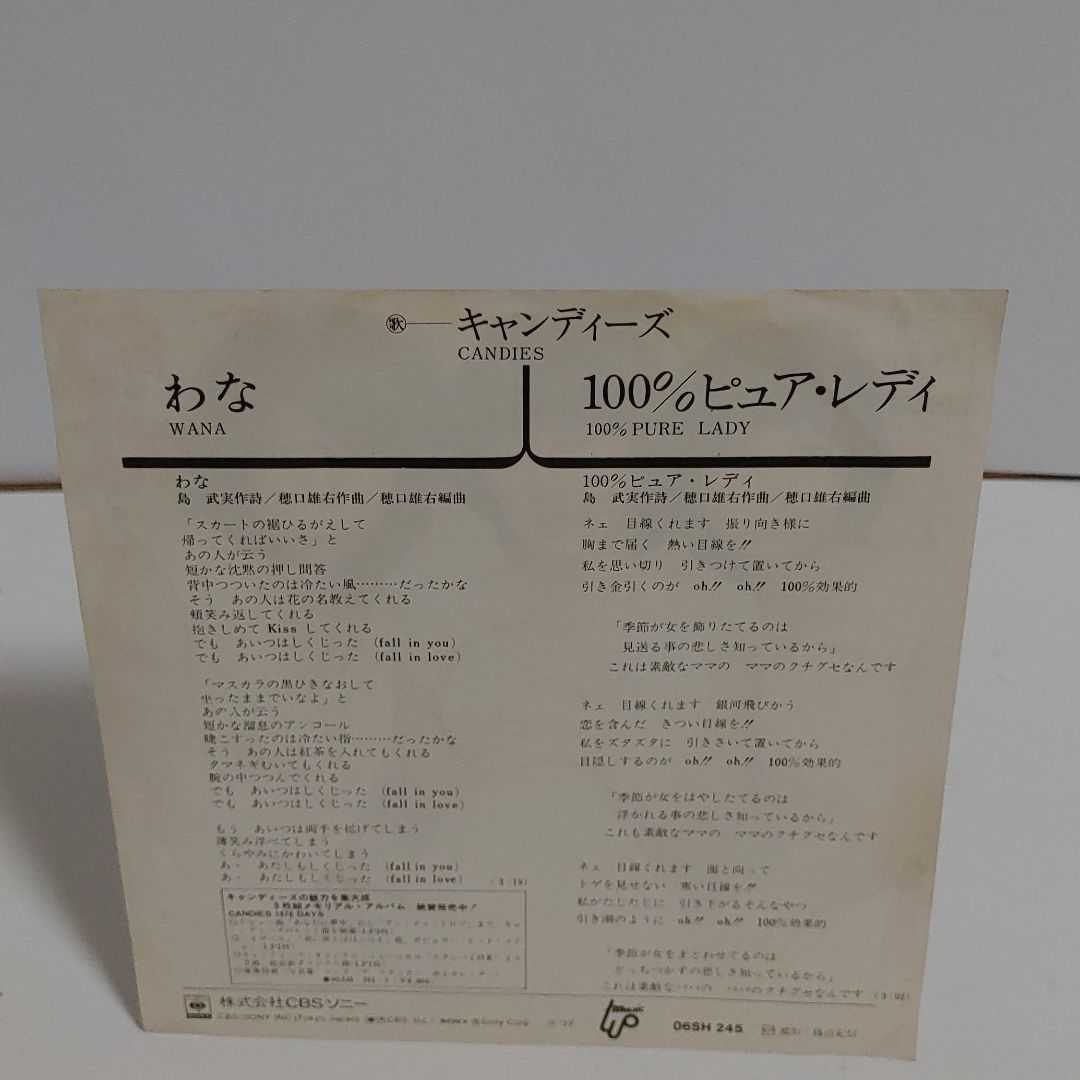 歌 キャンディーズ
CANDIES
わな
WANA
100%ピュア・レディ
100% PURE LADY
わな
島 武実作詩/穂口雄右作曲/穂口雄右編曲
「スカートの裾ひるがえして
帰ってくればいいさ」と
あの人が云う
短かな沈黙の押し問答
背中つついたのは冷たい風………だったかな
そう あの人は花の名教えてくれる
頬笑み返してくれる
抱きしめて Kiss してくれる
でも あいつはしくじった (fall in you)
でも あいつはしくじった (fall in love)
「マスカラの黒ひきなおして
坐ったままでいなよ」と
あの人が云う
短かな溜息のアンコール
睫こすったのは冷たい指………だったかな
そう あの人は紅茶を入れてもくれる
タマネギむいてもくれる
腕の中つつんでくれる
でも あいつはしくじった (fall in you)
でも あいつはしくじった (fall in love)
もう あいつは両手を拡げてしまう
薄笑み浮べてしまう
くらやみにかわいてしまう
あ・ あたしもしくじった (fall in you)
あ・ あたしもしくじった (fall in love)
(3:19)
キャンディーズの魅力を集大成
5枚組メモリアル・アルバム 絶賛発売中!
CANDIES 1676 DAYS
100%ピュア・レディ
島 武実作詩/穂口雄右作曲/穂口雄右編曲
ネェ 目線くれます 振り向き様に
胸まで届く 熱い目線を!!
私を思い切り 引きつけて置いてから
引き金引くのが oh!! oh!! 100%効果的
「季節が女を飾りたてるのは
見送る事の悲しさ知っているから」
これは素敵なママの ママのクチグセなんです
ネェ 目線くれます 銀河飛びかう
恋を含んだ きつい目線を!!
私をズタズタに 引きさいて置いてから
目隠しするのが oh!! oh!! 100%効果的
「季節が女をはやしたてるのは
浮かれる事の悲しさ知っているから」
これも素敵なママの ママのクチグセなんです
ネェ 目線くれます 面と向って
トゲを見せない 寒い目線を!!
私がたじたじに 引き下がるそんなやつ
引き潮のように oh!! oh!! 100%効果的
「季節が女をまどわせてるのは
どっちつかずの悲しさ知っているから」
これは素敵なパパの パパのクチグセなんです (3:02)
株式会社CBSソニー
Music UP
06SH 245